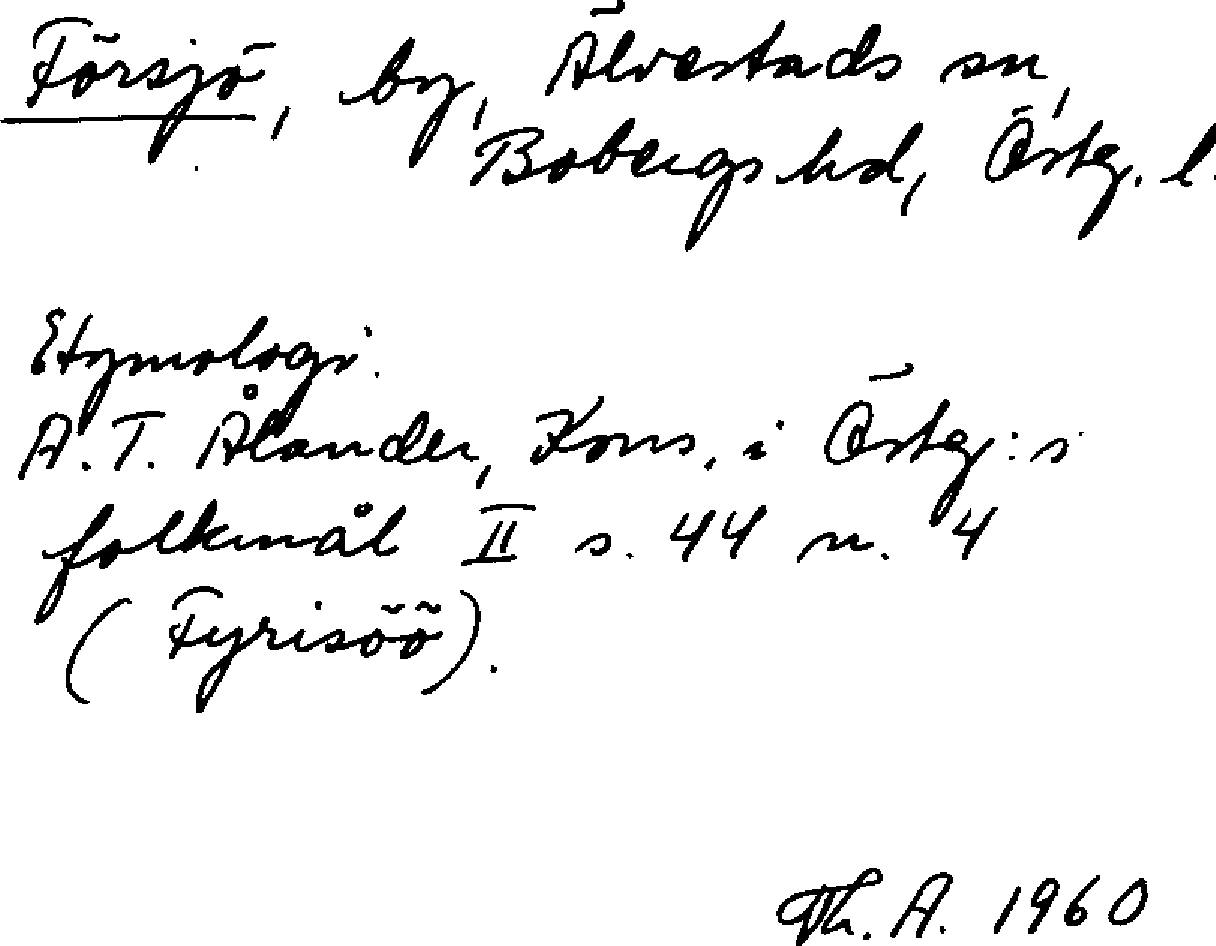 Försjö, by, Älvestads sn,
Bobergs hd, Östg. l.
Etymologi.
A. T. Ålander, Kons. i Östg:s
folkmål II s. 44 n. 4
(Fyrisöö).
Th. A. 1960